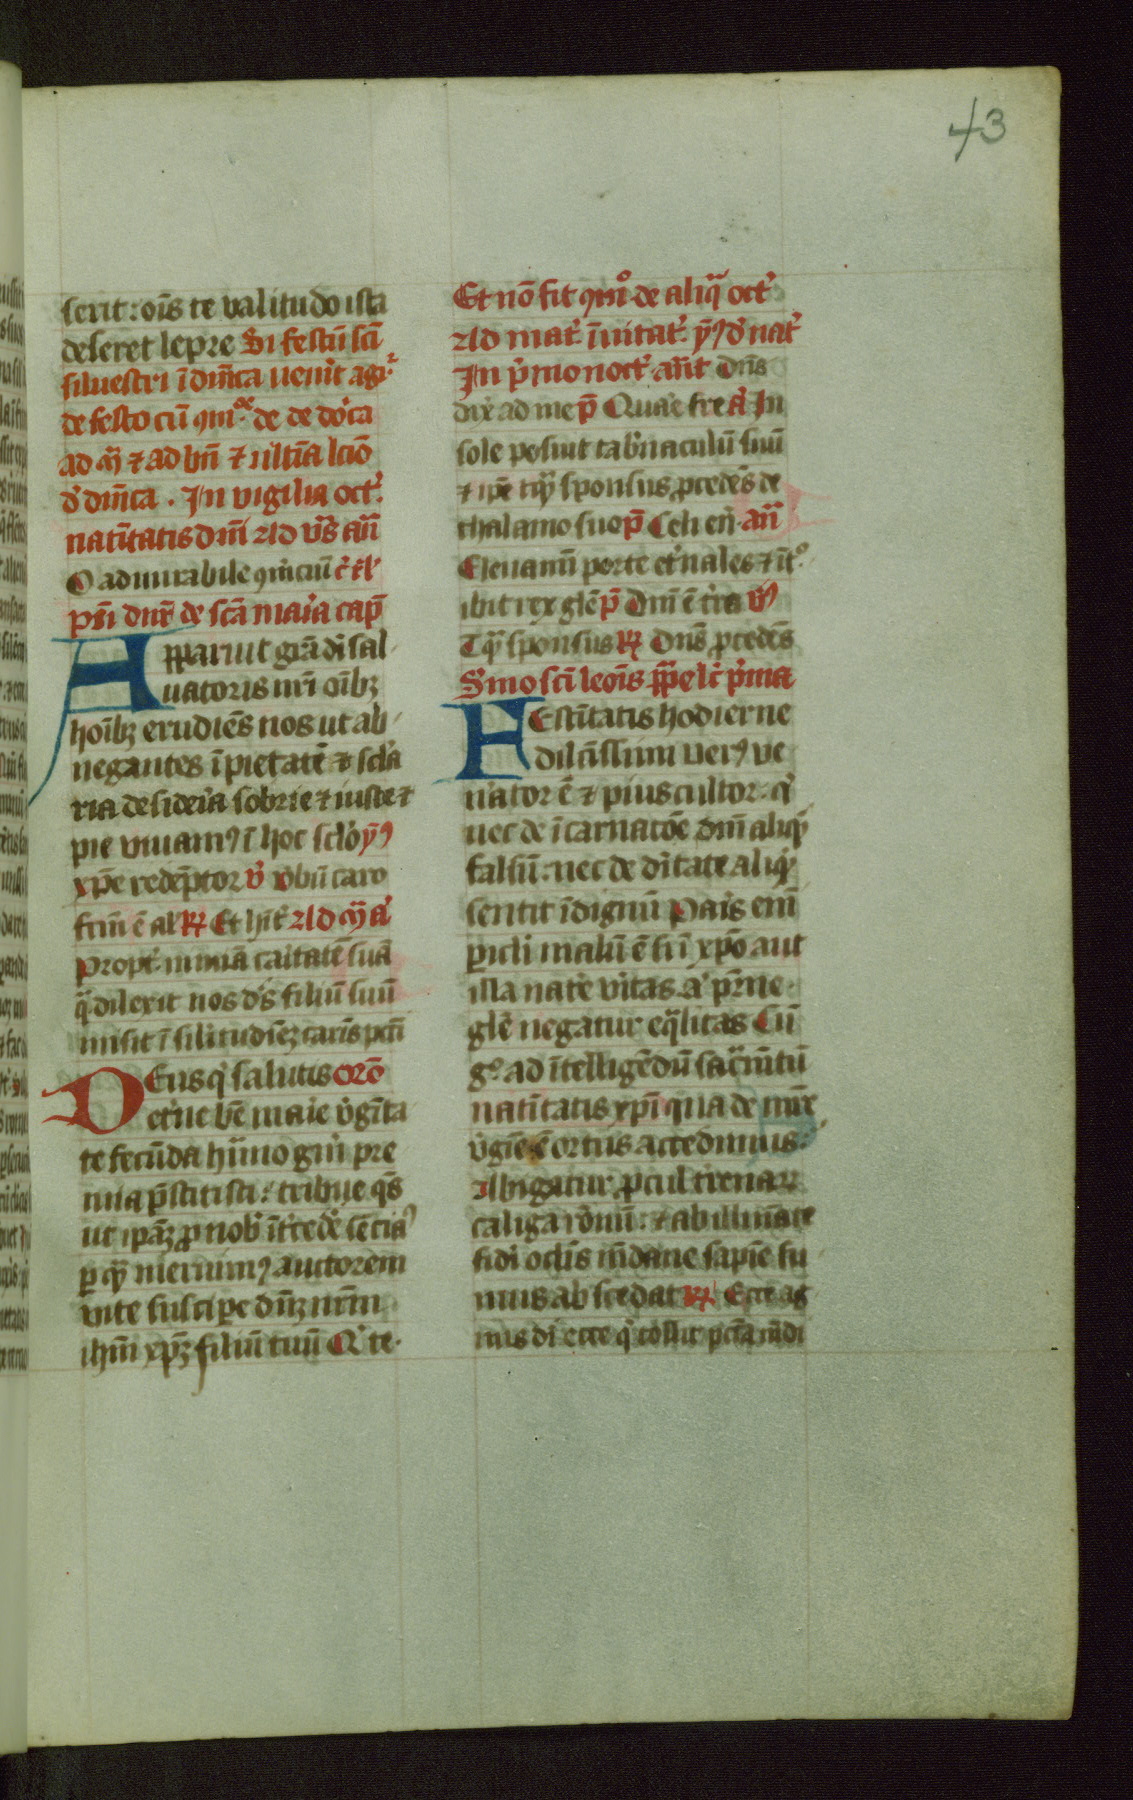 43
serit: oi̅s te valitudo ista
deseret lepre Si festu̅ sci̅
siluestri i̅ di̅nica ueni̅t agi͛
de festo cu̅ de de do̅ca
ad et ad bn̅ et ulti̅a lcio̅
d̛ di̅nica. In vigilia oct̛.
nati̅tatis dni̅ ad v̛s an̅
O admirabile
de sca̅ maria cap̅
Apparuit gra̅ di̅ sal
uatoris nr̅i oi̅bꝫ
hoi̅bꝫ erudie̅s nos ut ab
negantes i̅pietate̅ et scl̛a
ria desideria sobrie et iuste et
pie viuamꝰ i̅ hoc scl̛o yꝰ
xp̅e rede̅ptor v̛ v̛bu̅ caro
Propt̛ nimia̅ caritate̅ sua̅
q̅ dilexit nos d̅s filiu̅ suu̅
misit i̅ carnis pcti̅
DEus q̛ salutis oro̅
et̛ne be̅ marie v̛gi̅ta
te fecu̅da hu̅ano gn̛i pre
mia p̅stitisti: tribue q̅s
ut ipa̅ꝫ p̲ nob̛ i̅t̛cede̛
p̲ q̅ meruimꝰ auctorem
vite suscipe dn̅ꝫ nr̅m
ihm̅ xp̅ꝫ filiu̅ tuu̅ Q̛ te.
Et no̅ fit de aliq̅ oct̛
ad mat̛. i̅uitat̛. yꝰ d̛ nat̛
In p̛mo noct̛. an̅t Dn̅s
dix̛ ad me p̅ Quare fre In
sole posuit tab̛naculu̅ suu̅
et ip̅e tq̅ sponsus p̲cede̅s de
thalamo suo p̅ Celi en̛. an̅
Eleuami̅ porte et̛nales et i̅t°
ibit rex gle̅ p̅ Dni̅ e̅ t̛ra vꝰ
Tq̅ sponsus ℟ Dn̅s p̲cede̅s
S̛mo sci̅ leoi̅s p̛ma
FEsti̅tatis hodierne
dilc̅issimi uerꝰ ve
n̛ator e̅ et pius cultor. q̛
nec de i̅carnato̅e dni̅ aliq̛
falsu̅: nec de di̅tate aliq̛
sentit i̅dignu̅ Paris eni̅
p̲icl̛i malu̅ e̅ si i̅ xp̅o aut
illa nat̛e v̛itas. a̛ p̅rne
gle̅ negatur eq̅litas Cu̅
g° ad i̅tellige̅du̅ sac̛m̅tu̅
nati̅tatis xp̅i qua de mr̅e
v̛gi̅e e̅ ortus accedimus:
Abigatur p̲cul t̛renaꝝ
caliga ro̅nu̅: et ab illuminate
fidi oclis mu̅dane sapie̅ fu
mus abscedat ℟ Ecce ag
nus di̅ ecce q̛ tollit pcta̅ mu̅di